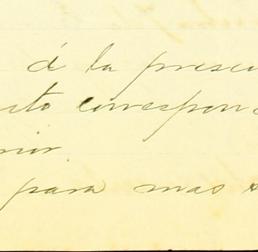 á la prese
ito correspon
rior.
para mas